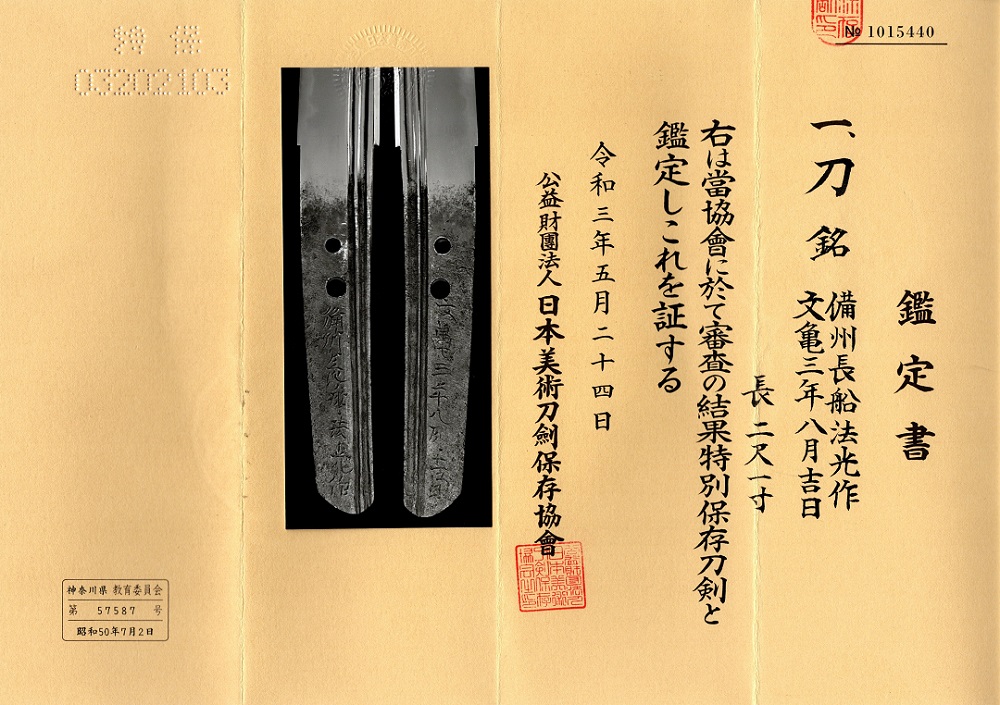 № 1015440
鑑定書
一、刀 銘
備州長船法光作
文亀三年八月吉日
長 二尺一寸
右は當協會に於て審査の結果特別保存刀剣と
鑑定しこれを証する
令和三年五月二十四日
公益財團法人日本美術刀劍保存協會
特保
03202103
神奈川県 教育委員会
第 57587 号
昭和50年7月2日